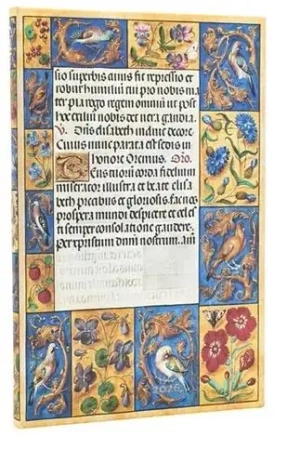 sio superbis anus sit repressio et
robur humiliū cui pro nobis ma
ter pia rego regem omniū ut post
hec exiliū nobis det uera gaudia.
V. Ora Elisabeth indiue decore
Cuius nunc parata est sedis in
Chonore Oremus. Oro.
Eus tuorū corda fidelium
miserator illustra et beate elisa
beth precibus et gloriosis. fac nos
prospera mundi despicere et celes
ti semper consolatione gaudere.
per xpistum dnm nostrum. Am
2026